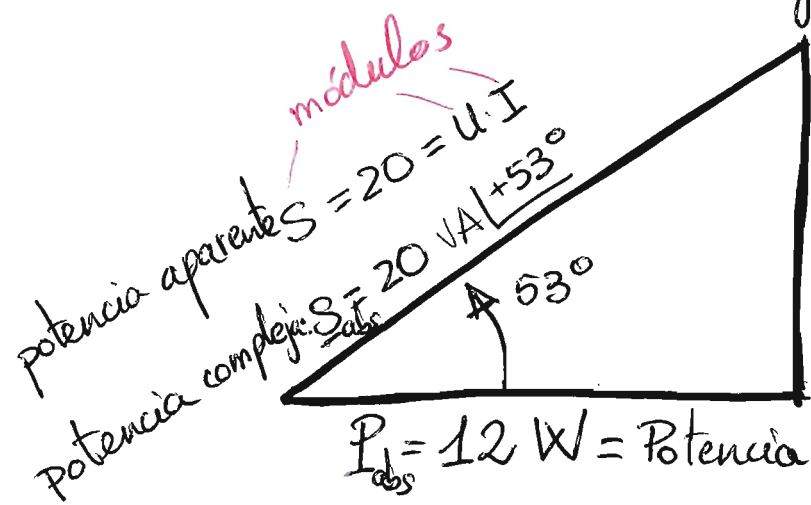 módulos
potencia aparente S = 20 = U·I
potencia compleja: S_abs = 20 VA∟+53°
53°
P_abs = 12 W = Potencia